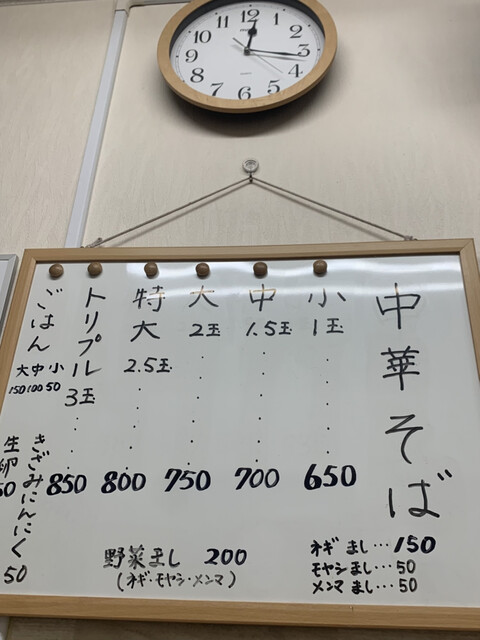 12
1
2
3
4
5
6
7
8
9
10
11
中華そば
小 1玉 ・・・・ 650
中 1.5玉 ・・・・ 700
大 2玉 ・・・・ 750
特大 2.5玉 ・・・ 800
トリプル 3玉 ・・・ 850
ごはん
大 中 小
150 100 50
きざみにんにく 50
生卵
野菜まし 200
(ネギ・モヤシ・メンマ)
ネギ まし・・・150
モヤシ まし・・・50
メンマ まし・・・50